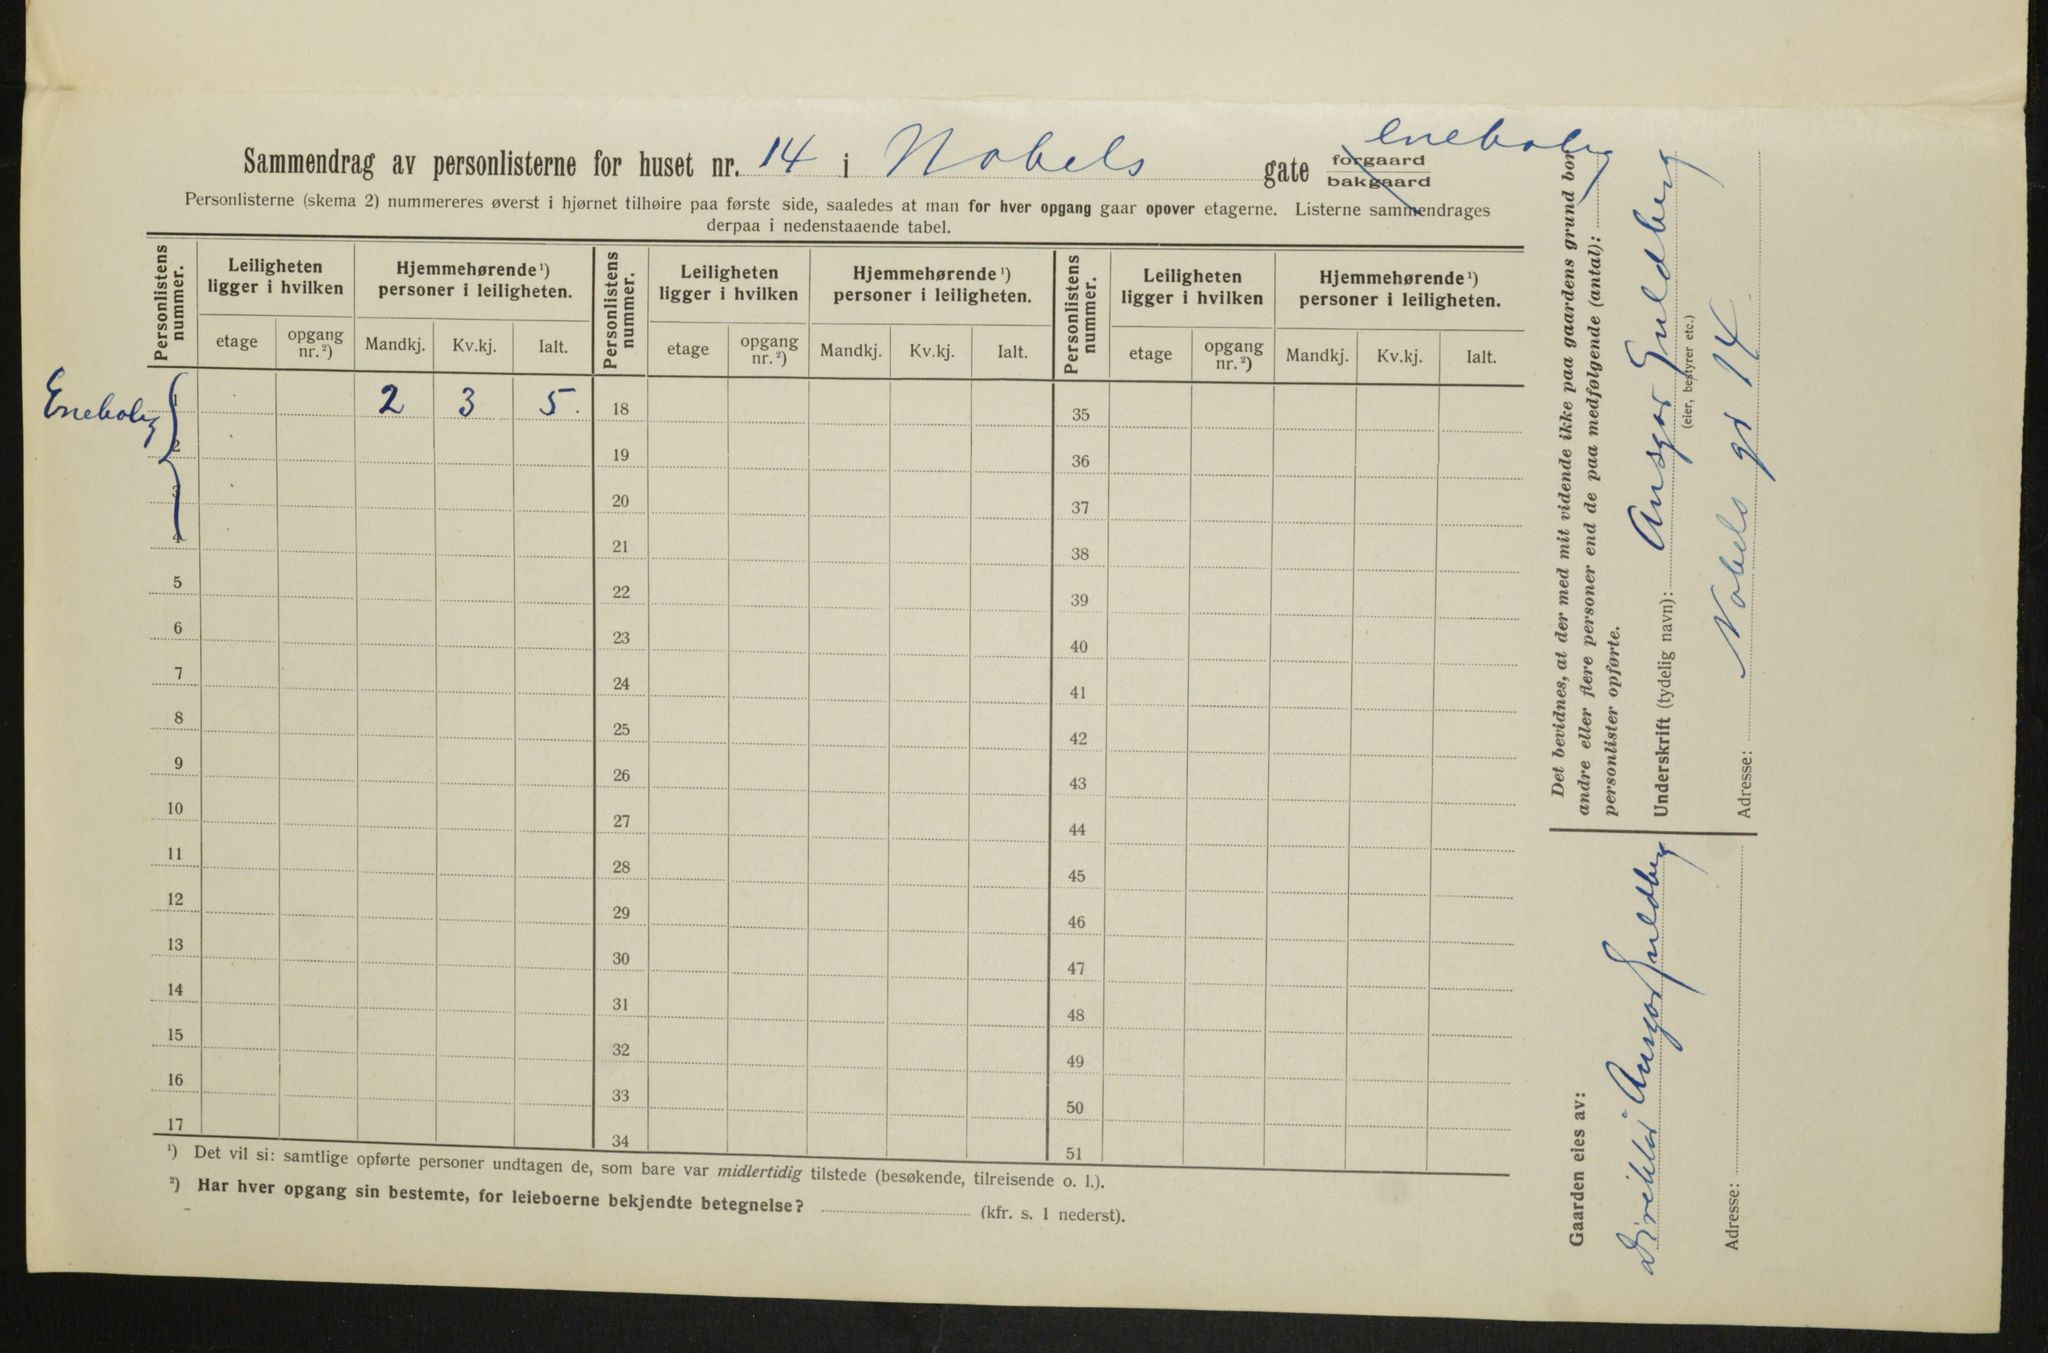 enebolig
Sammendrag av personlisterne for huset nr. 14 i Nobels gate forgaard bakgaard
Personlisterne (skema 2) nummereres øverst i hjørnet tilhøire paa første side, saaledes at man for hver opgang gaar opover etagerne. Listerne sammendrages
derpaa i nedenstaaende tabel.
Personlistens nummer. Leiligheten ligger i hvilken Hjemmehørende ¹) personer i leiligheten. Personlistens nummer. Leiligheten ligger i hvilken Hjemmehørende ¹) personer i leiligheten. Personlistens nummer. Leiligheten ligger i hvilken Hjemmehørende ¹) personer i leiligheten.
etage opgang nr. ²) Mandkj. Kv.kj. Ialt. etage opgang nr. ²) Mandkj. Kv.kj. Ialt. etage opgang nr. ²) Mandkj. Kv.kj. Ialt.
Enebolig 1 2 3 5. 18 35
2 19 36
3 20 37
4 21 38
5 22 39
6 23 40
7 24 41
8 25 42
9 26 43
10 27 44
11 28 45
12 29 46
13 30 47
14 31 48
15 32 49
16 33 50
17 34 51
¹) Det vil si: samtlige opførte personer undtagen de, som bare var midlertidig tilstede (besøkende, tilreisende o. l.).
²) Har hver opgang sin bestemte, for leieboerne bekjendte betegnelse? (kfr. s. 1 nederst).
Det bevidnes, at der med mit vidende ikke paa gaardens grund bor
andre eller flere personer end de paa medfølgende (antal):
personlister opførte.
Underskrift (tydelig navn): Ansgar Guldberg
(eier, bestyrer etc.)
Adresse: Nobels gt 14.
Gaarden eies av:
Direktør Ansgar Guldberg
Adresse: